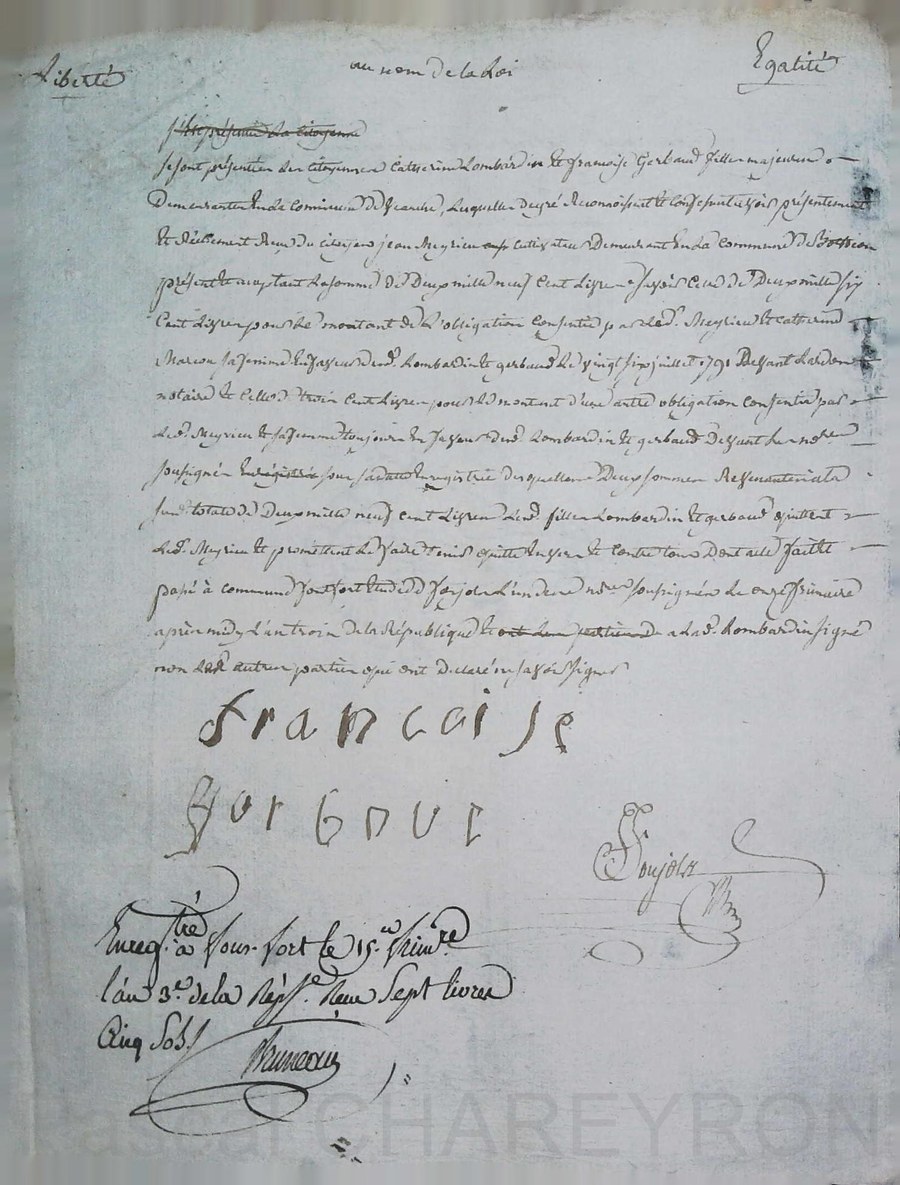 Liberté
au nom de la Loi
Egalité
s'est présentée la citoyenne
se sont présentées les citoyennes Catherine Lombardin et francoise Gerbaud filles majeures
Demeurantes en la Commune de lesquelles de gré Reconnoissent et Confessent avoir présentement
et Réellement Reçu du citoyen jean Meyrieu cultivateur Demeurant en la commune de
présent et acceptant la somme de Deux mille neuf Cent Livres savoir Celle de Deux mille six
Cent Livres pour le montant de l'obligation Consentie par led. Meyrieu et catherine
Marcou sa femme en faveur desd. Lombardin et gerbaud le vingt six juillet 1791 Devant Lardon
notaire et Celle de trois Cent Livres pour le montant d'une autre obligation Consentie par
Led. Meyrieu et sa femme toujours en faveur desd. Lombardin et gerbaud Devant Le nore
soussigné Enregistrée sous sa date Enregistrée desquelles Deux sommes Revenantes à la
susd. totale de Deux mille neuf cent Livres Lesd. filles Lombardin et gerbaud quittent
Led. Meyrieu et promettent Le faire tenir quitte Envers et Contre tous Dont acte faitte
passé à commune font fort Etude de foujols L'un des nores soussignés Le onze frimaire
après midy L'an trois de la République et a Lad. Lombardin signé
non Les autres parties qui ont Déclaré ne savoir signer
francoise
gerboue
Foujols
Enregtré à Font-fort le 15.e frimre
l'an 3.e de la Répe. Reçu Sept livres
Cinq Sols
Bruneau
Pascal CHAREYRON